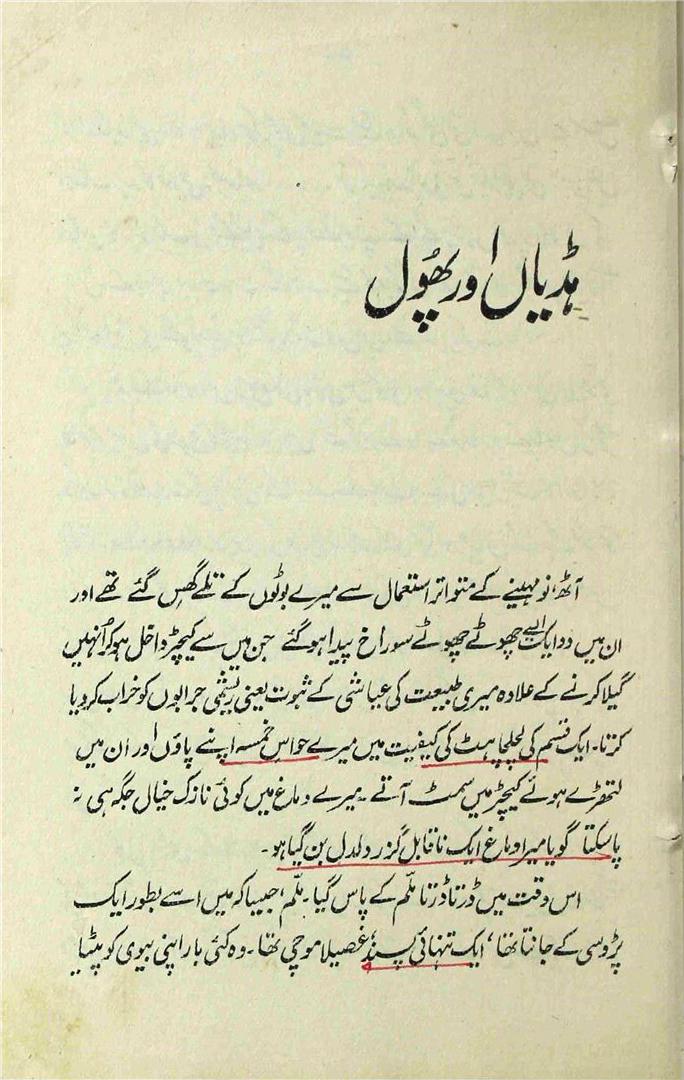 ہڈیاں اور پھُول
آٹھ، نو مہینے کے متواتر استعمال سے میرے بوٹوں کے تلے گھِس گئے تھے اور
ان میں دو ایک ایسے چھوٹے چھوٹے سوراخ پیدا ہو گئے جن میں سے کیچڑ داخل ہو کر اُنہیں
گیلا کرنے کے علاوہ میری طبیعت کی عیاشی کے ثبوت یعنی ریشمی جرابوں کو خراب کر دیا
کرتا۔ ایک قسم کی لجلجاہٹ کی کیفیت میں میرے حواسِ خمسہ اپنے پاؤں اور ان میں
لتھڑے ہوئے کیچڑ میں سمٹ آتے۔ میرے دماغ میں کوئی نازک خیال جگہ ہی نہ
پا سکتا گویا میرا دماغ ایک ناقابلِ گزر دلدل بن گیا ہو۔
اس وقت میں ڈرتا ڈرتا ملّم کے پاس گیا۔ ملّم، جیسا کہ میں اسے بطور ایک
پڑوسی کے جانتا تھا، ایک تنہائی پسند، غصیلا موچی تھا۔ وہ کئی بار اپنی بیوی کو پیٹا